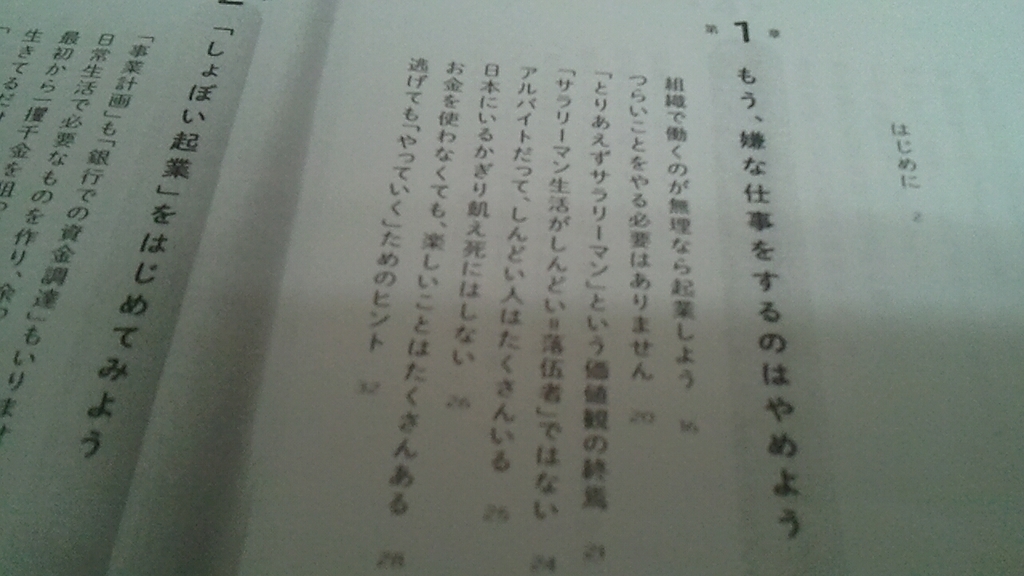 はじめに 2
第1章 もう、嫌な仕事をするのはやめよう
組織で働くのが無理なら起業しよう 16
つらいことをやる必要はありません 20
「とりあえずサラリーマン」という価値観の終焉 21
「サラリーマン生活がしんどい=落伍者」ではない 24
アルバイトだって、しんどい人はたくさんいる 25
日本にいるかぎり飢え死にはしない 26
お金を使わなくても、楽しいことはたくさんある 28
逃げても「やっていく」ためのヒント 32
「しょぼい起業」をはじめてみよう
「事業計画」も「銀行での資金調達」もいりません
日常生活で必要なものを作り、余っ
最初から一攫千金を狙っ
生きてるだけ